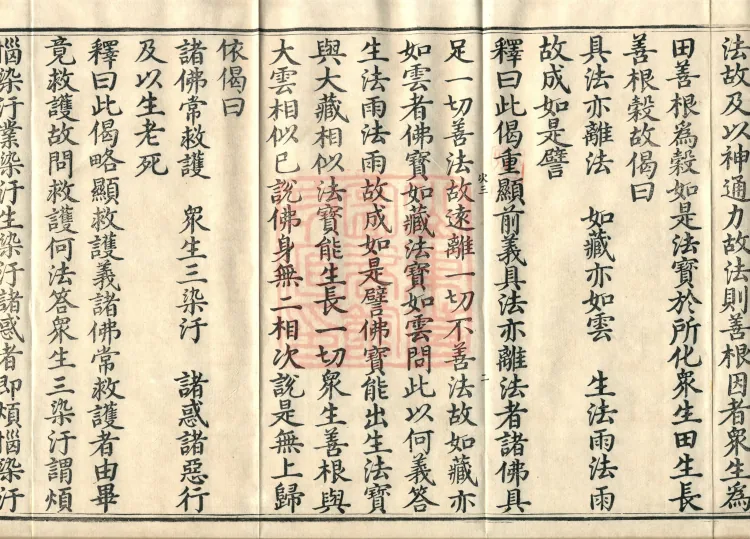 法故及以神通力故法則善根因者衆生為
田善根為穀如是法寶於所化衆生田生長
善根穀故偈曰
具法亦離法 如藏亦如雲 生法雨法雨
故成如是譬
釋曰此偈重顯前義具法亦離法者諸佛具
足一切善法故遠離一切不善法故如藏亦
如雲者佛寶如藏法寶如雲問此以何義答
生法雨法雨故成如是譬佛寶能出生法寶
與大藏相似法寶能生長一切衆生善根與
大雲相似已說佛身無二相次說是無上歸
依偈曰
諸佛常救護 衆生三染汙 諸惑諸惡行
及以生老死
釋曰此偈略顯救護義諸佛常救護者由畢
竟救護故問救護何法答衆生三染汙謂煩
惱染汙業染汙生染汙諸惑者即煩惱染汙